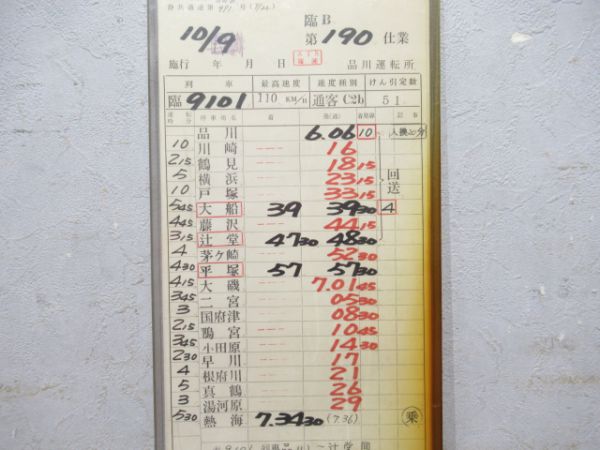 臨B
10/9
第190仕業
施行 年 月 日 品川運転所
列 車 最高速度 速度種別 けん引定数
臨9101 110 KM/H 通客C2b 51
運転時分 停車場名 着 発(通) 着発線 記事
品川 6.06 10 入換20分
10 川崎 16
2 15 鶴見 18 15
5 横浜 23 15 回送
10 戸塚 33 15
5 45 大船 39 39 30 4
4 45 藤沢 44 15
3 15 辻堂 47 30 48 30
4 茅ヶ崎 52 30
4 30 平塚 57 57 30
4 15 大磯 7.01 45
3 45 二宮 05 30
3 国府津 08 30
2 15 鴨宮 10 45
3 45 小田原 14 30
2 30 早川 17
4 根府川 21
5 真鶴 26
3 湯河原 29
5 30 熱海 7.34 30 (7.36) 乗